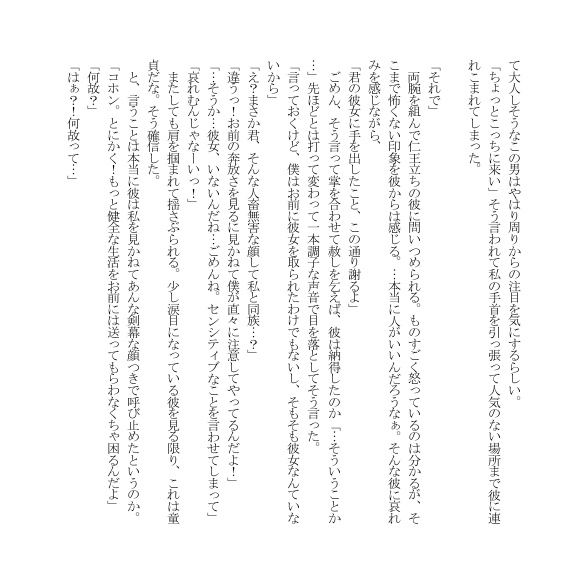 て大人しそうなこの男はやはり周りからの注目を気にするらしい。
「ちょっとこっちに来い」そう言われて私の手首を引っ張って人気のない場所まで彼に連
れこまれてしまった。
「それで」
両腕を組んで仁王立ちの彼に問いつめられる。ものすごく怒っているのは分かるが、そ
こまで怖くない印象を彼からは感じる。…本当に人がいいんだろうなぁ。そんな彼に哀れ
みを感じながら、
「君の彼女に手を出したこと、この通り謝るよ」
ごめん、そう言って掌を合わせて赦しを乞えば、彼は納得したのか「…そういうことか
…」先ほどとは打って変わって一本調子な声音で目を落としてそう言った。
「言っておくけど、僕はお前に彼女を取られたわけでもないし、そもそも彼女なんていな
いから」
「え？まさか君、そんな人畜無害な顔して私と同族…？」
「違うっ！お前の奔放さを見るに見かねて僕が直々に注意してやってるんだよ！」
「…そうか…彼女、いないんだね…ごめんね。センシティブなことを言わせてしまって」
「哀れむんじゃなーいっ！」
またしても肩を掴まれて揺さぶられる。少し涙目になっている彼を見る限り、これは童
貞だな。そう確信した。
と、言うことは本当に彼は私を見かねてあんな剣幕な顔つきで呼び止めたというのか。
「コホン。とにかく！もっと健全な生活をお前には送ってもらわなくちゃ困るんだよ」
「何故？」
「はぁ？！何故って…」